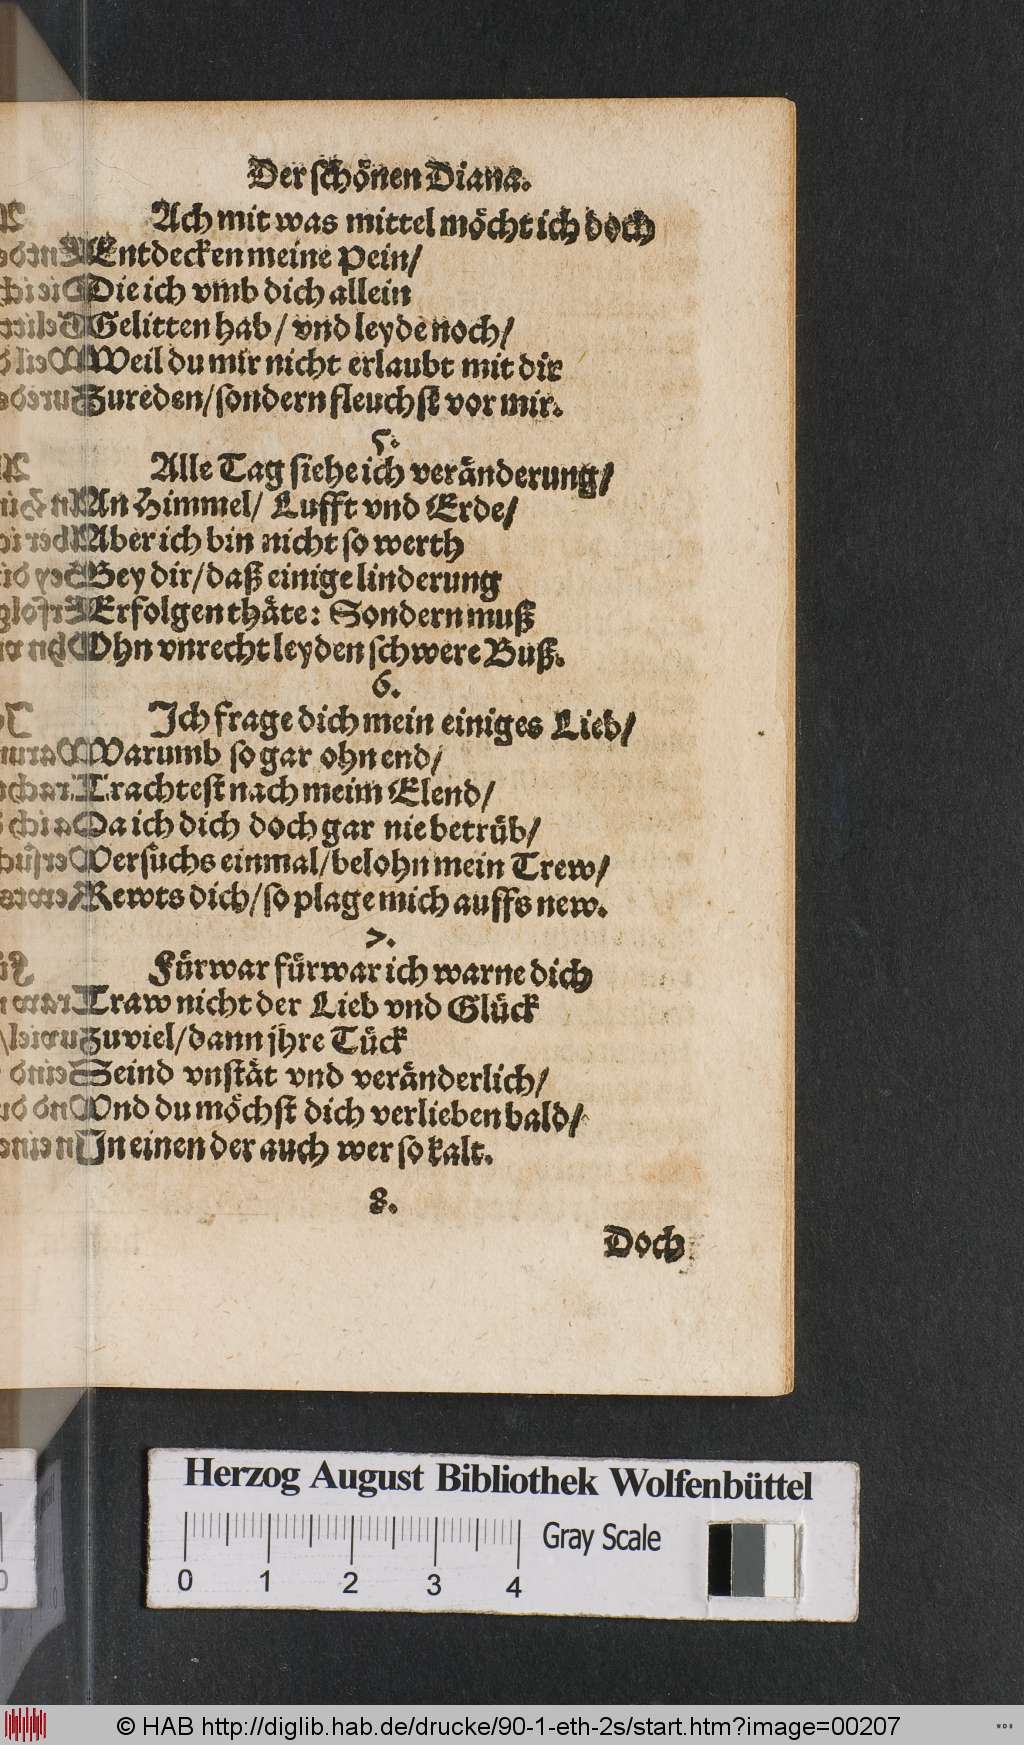 Der schönen Diana.
Ach mit was mittel möcht ich doch
Entdecken meine Pein/
Die ich vmb dich allein
Gelitten hab/ vnd leyde noch/
Weil du mir nicht erlaubt mit dir
Zureden/sondern fleuchst vor mir.
5.
Alle Tag siehe ich veränderung/
An Himmel/ Lufft vnd Erde/
Aber ich bin nicht so werth
Bey dir/daß einige linderung
Erfolgen thäte: Sondern muß
Ohn vnrecht leyden schwere Buß.
6.
Ich frage dich mein einiges Lieb/
Warumb so gar ohn end/
Trachtest nach meim Elend/
Da ich dich doch gar nie betrüb/
Versuchs einmal/belohn mein Trew/
Rewts dich/so plage mich auffs new.
7.
Fürwar fürwar ich warne dich
Traw nicht der Lieb vnd Glück
Zuviel/dann jhre Tück
Seind vnstät vnd veränderlich/
Vnd du möchst dich verlieben bald/
In einen der auch wer so kalt.
8.
Doch
Herzog August Bibliothek Wolfenbüttel
Gray Scale
0 1 2 3 4
© HAB http://diglib.hab.de/drucke/90-1-eth-2s/start.htm?image=00207